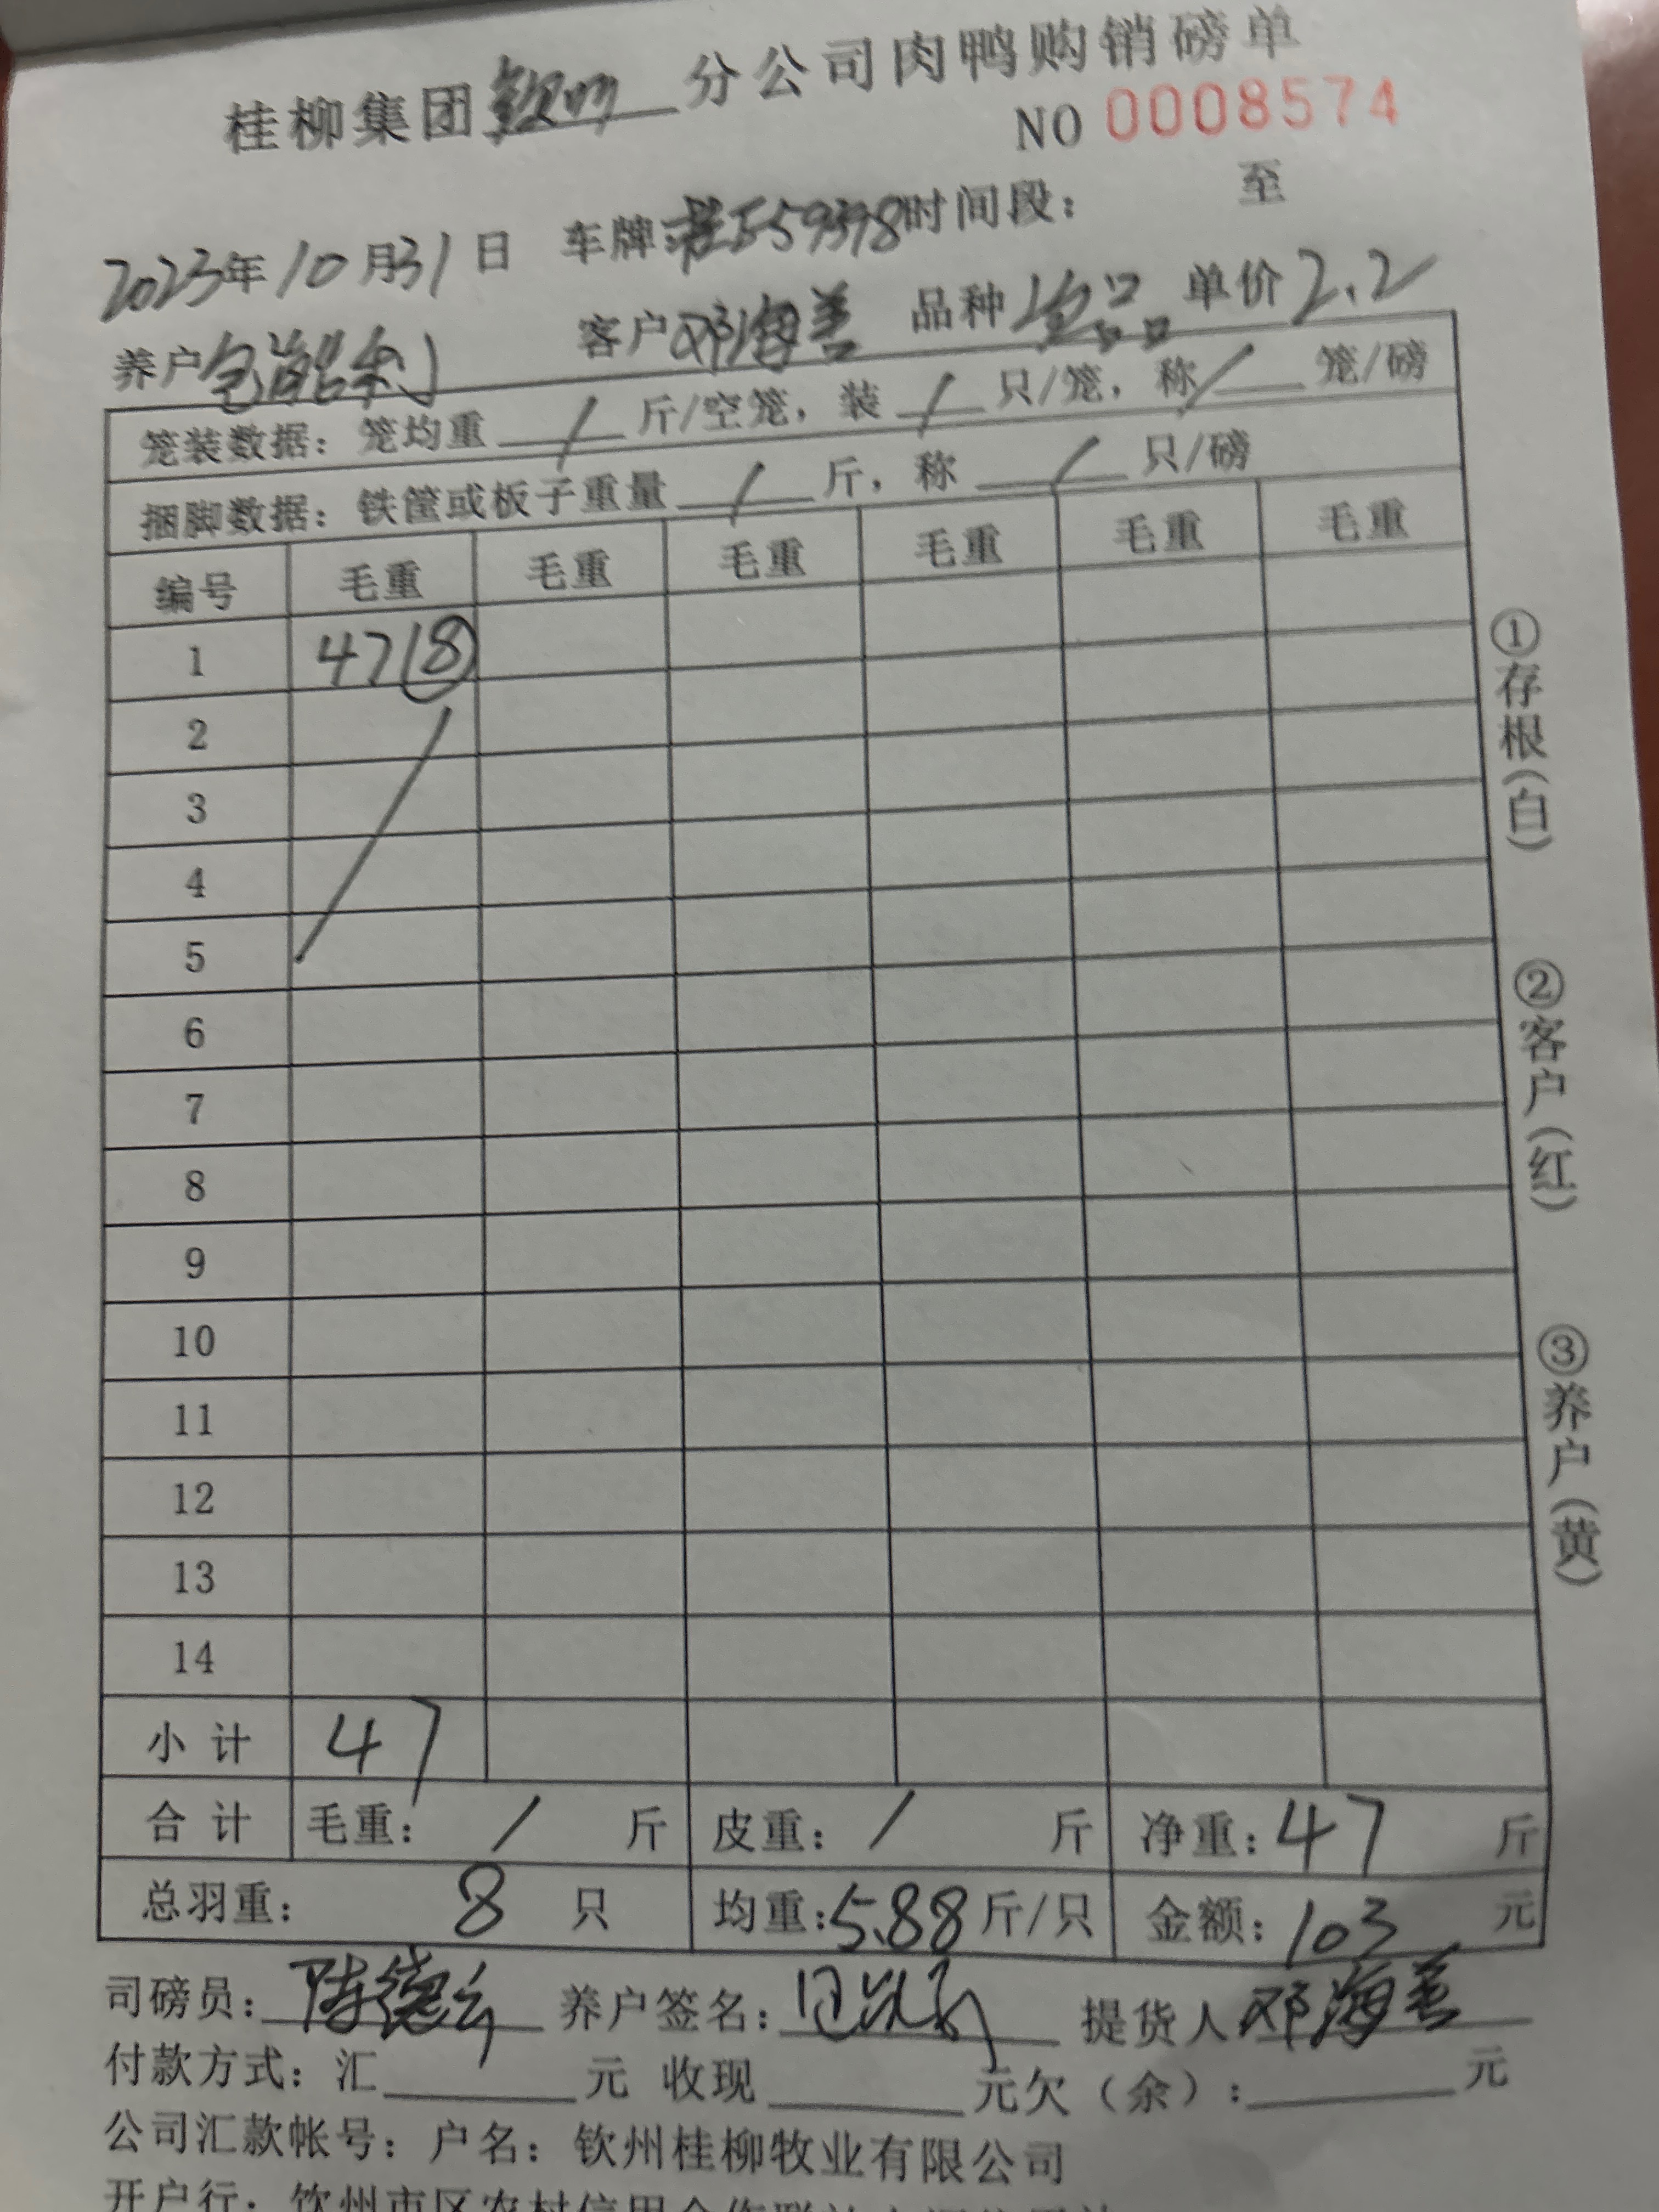 桂柳集团钦州分公司肉鸭购销磅单
NO 0008574
2023年10月31日 车牌: 时间段: 至
养户 客户邓海善 品种 单价2.2
笼装数据: 笼均重 / 斤/空笼, 装 / 只/笼, 称 / 笼/磅
捆脚数据: 铁筐或板子重量 / 斤, 称 / 只/磅
编号 毛重 毛重 毛重 毛重 毛重 毛重
1 47 8
2
3
4
5
6
7
8
9
10
11
12
13
14
小计 47
合计 毛重: / 斤 皮重: / 斤 净重: 47 斤
总羽重: 8 只 均重: 5.88 斤/只 金额: 103 元
①存根(白)
②客户(红)
③养户(黄)
司磅员: 陈德 养户签名: 提货人 邓海善
付款方式: 汇 元 收现 元欠(余): 元
公司汇款帐号: 户名: 钦州桂柳牧业有限公司
开户行: 钦州市区农村信用合作联社